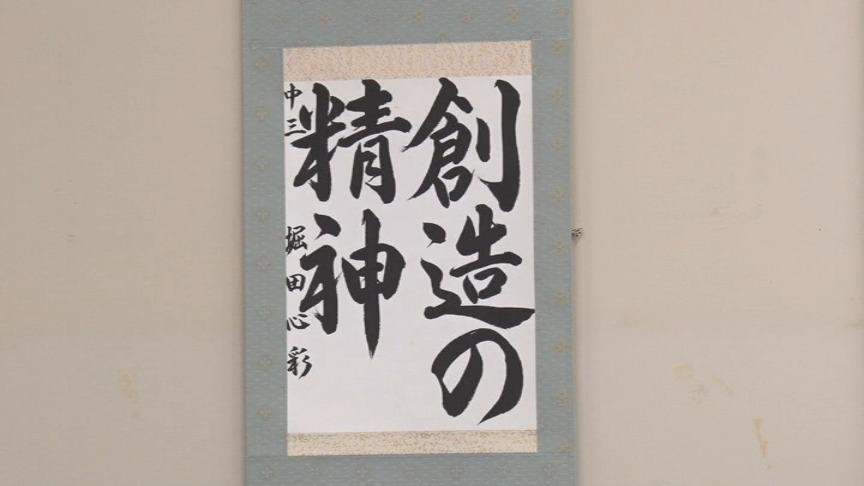 創造の
精神
中三 堀田心彩